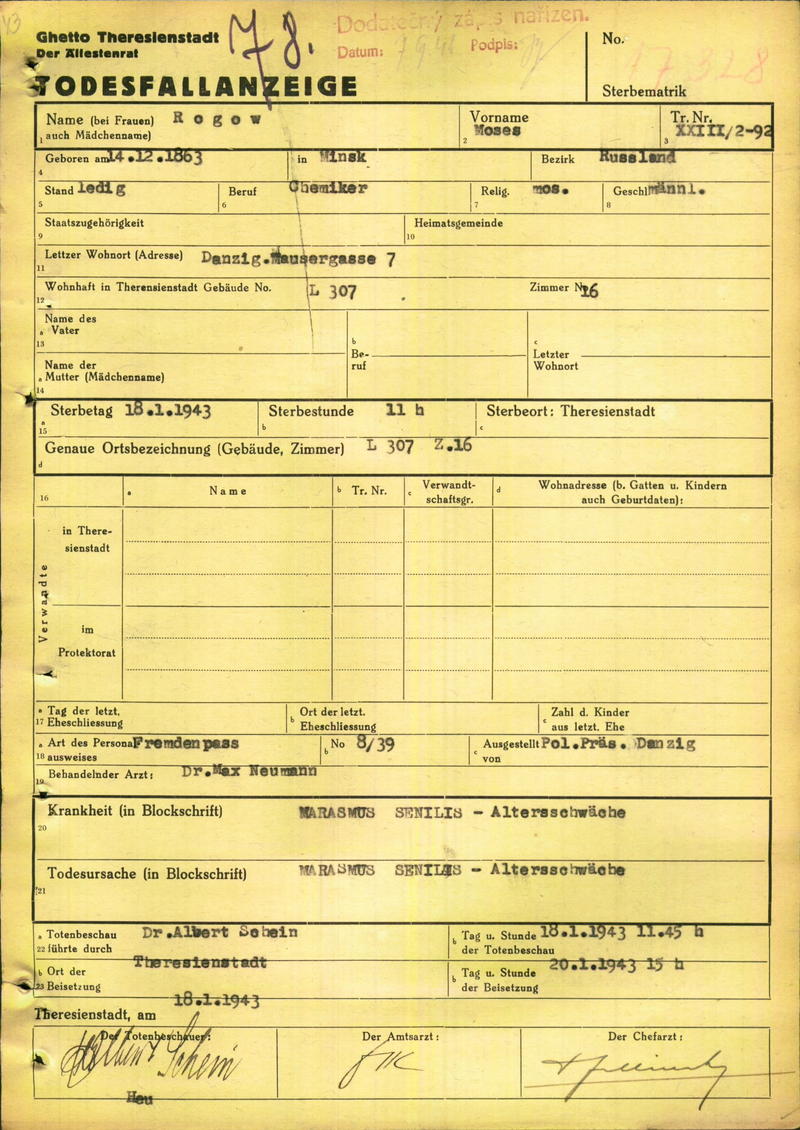 43
Ghetto Theresienstadt
Der Ältestenrat
78.
Dodatečný zápis nařízen.
Datum:
Podpis:
No.
17328
TODESFALLANZEIGE
Sterbematrik
Name (bei Frauen) Rogow Vorname Moses Tr. Nr. XXIII/2-92
1 auch Mädchenname) 2 3
Geboren am 14.12.1863 in Minsk Bezirk Russland
4
Stand ledig Beruf Chemiker Relig. mos. Geschl. männl.
5 6 7 8
Staatszugehörigkeit Heimatsgemeinde
9 10
Lettzer Wohnort (Adresse) Danzig.Mausergasse 7
11
Wohnhaft in Therensienstadt Gebäude No. L 307 Zimmer N 16
12
Name des
a Vater
13
Name der
a Mutter (Mädchenname)
14
b
Be-
ruf
c
Letzter
Wohnort
Sterbetag 18.1.1943 Sterbestunde 11 h Sterbeort: Theresienstadt
a 15 b c
Genaue Ortsbezeichnung (Gebäude, Zimmer) L 307 Z.16
d
16 a Name b Tr. Nr. c Verwandt-schaftsgr. d Wohnadresse (b. Gatten u. Kindern
auch Geburtdaten):
Verwandte
in There-
sienstadt
im
Protektorat
a Tag der letzt. b Ort der letzt. c Zahl d. Kinder
17 Eheschliessung Eheschliessung aus letzt. Ehe
a Art des Persona Fremdenpass b No 8/39 c Ausgestellt Pol.Präs. Danzig
18 ausweises von
19 Behandelnder Arzt: Dr.Max Neumann
Krankheit (in Blockschrift) MARASMUS SENILIS - Altersschwäche
20
Todesursache (in Blockschrift) MARASMUS SENILIS - Altersschwäche
21
a Totenbeschau Dr.Albert Schein b Tag u. Stunde 18.1.1943 11.45 h
22 führte durch der Totenbeschau
b Ort der Theresienstadt b Tag u. Stunde 20.1.1943 15 h
23 Beisetzung der Beisetzung
18.1.1943
Theresienstadt, am
Der Totenbeschauer: Der Amtsarzt: Der Chefarzt:
Albert Schein
Heu